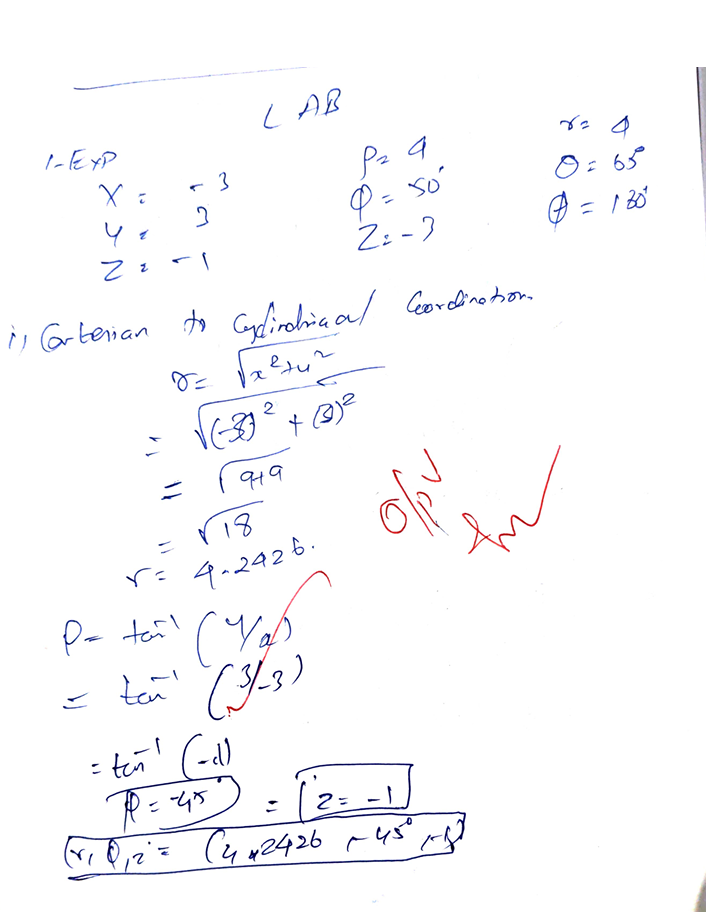 LAB
1-EXP
X = -3
Y = 3
Z = -1
ρ = 4
Φ = 50°
Z = -3
r = 4
θ = 65°
Φ = 130°
i) Carterian to Cylindrical Coordination.
r = √x²+y²
= √(-3)² + (3)²
= √9+9
= √18
r = 4.2426.
O/P ✓
ρ = tan⁻¹ (y/x)
= tan⁻¹ (3/-3)
= tan⁻¹ (-1)
φ = -45° = z = -1
(r, φ, z = (4.2426, -45°, -1)